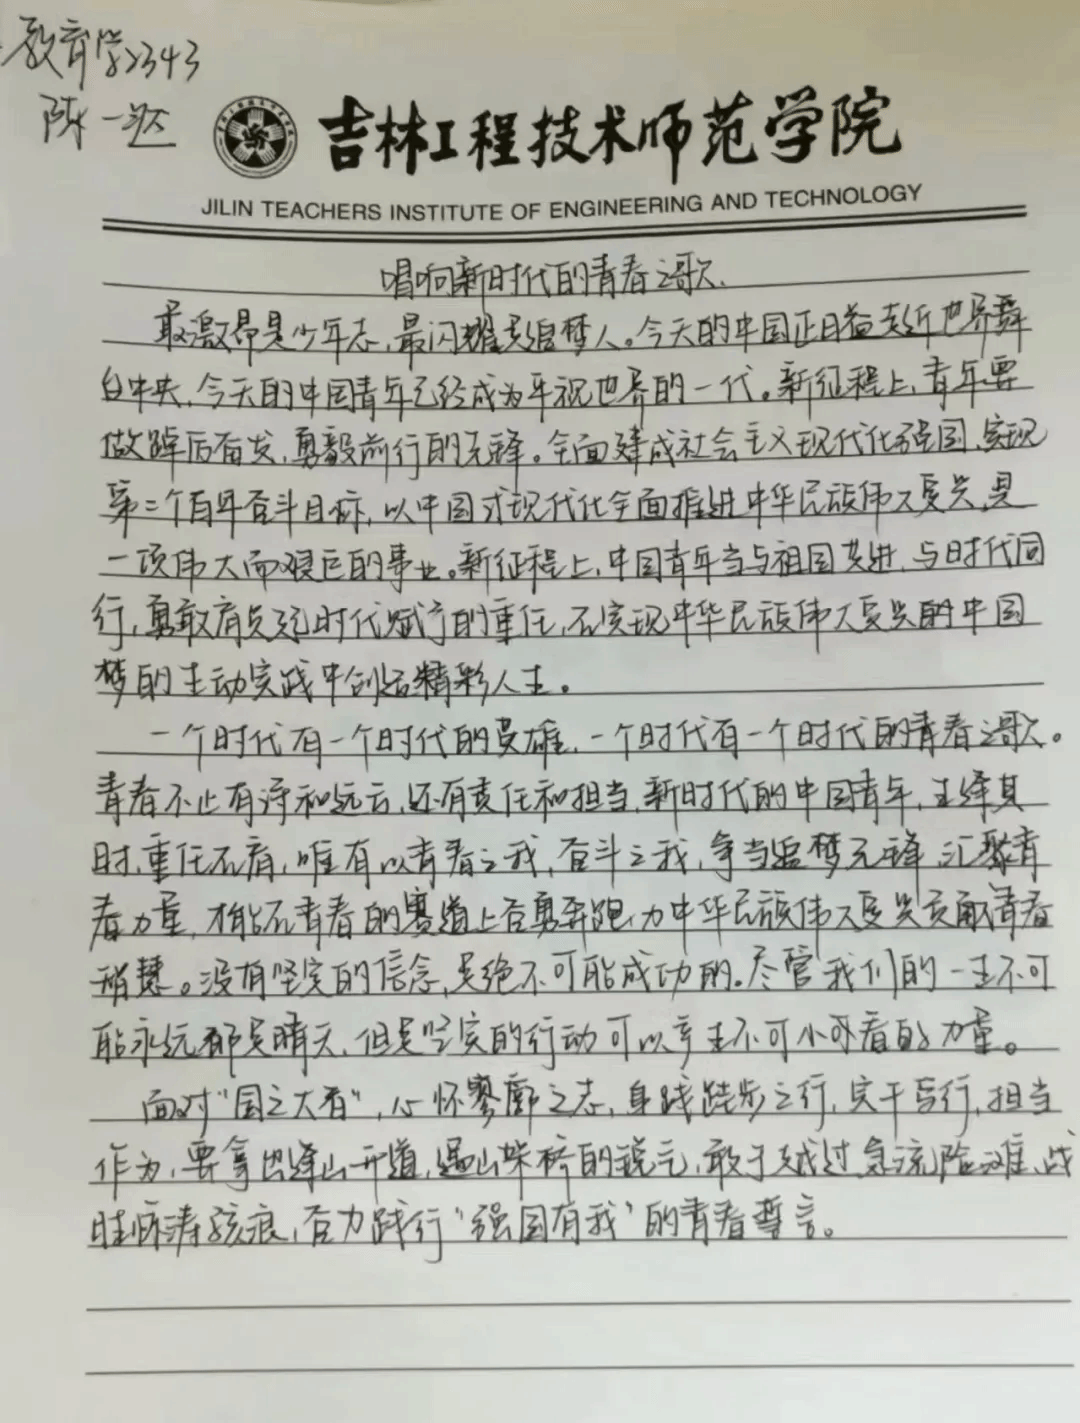 教育学2343
陈一
吉林工程技术师范学院
JILIN TEACHERS INSTITUTE OF ENGINEERING AND TECHNOLOGY
唱响新时代的青春之歌
最激昂是少年志,最闪耀是追梦人。今天的中国正日益走近世界舞
台中央,今天的中国青年已经成为平视世界的一代。新征程上,青年要
做踔厉奋发,勇毅前行的先锋。全面建成社会主义现代化强国,实现
第二个百年奋斗目标,以中国式现代化全面推进中华民族伟大复兴,是
一项伟大而艰巨的事业。新征程上,中国青年当与祖国共进,与时代同
行,勇敢肩负起时代赋予的重任,在实现中华民族伟大复兴的中国
梦的生动实践中创造精彩人生。
一个时代有一个时代的英雄,一个时代有一个时代的青春之歌。
青春不止有诗和远方,还有责任和担当,新时代的中国青年,生逢其
时,重任在肩,唯有以青春之我,奋斗之我,争当追梦先锋,汇聚青
春力量,才能在青春的赛道上奋勇奔跑,为中华民族伟大复兴贡献青春
智慧。没有坚定的信念,是绝不可能成功的。尽管我们的一生不可
能永远都是晴天,但是坚实的行动可以产生不可小看的力量。
面对"国之大者",心怀寥廓之志,身践跬步之行,实干笃行,担当
作为,要拿出逢山开道,遇山架桥的锐气,敢于越过急流险滩,战
胜惊涛骇浪,奋力践行"强国有我"的青春誓言。